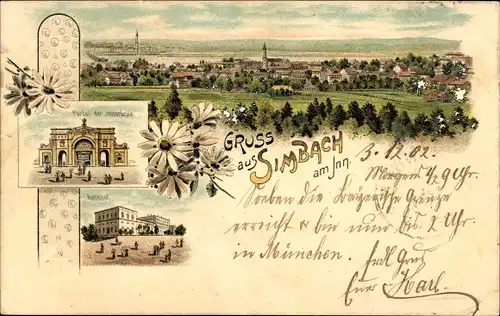 Portal der Innbrücke.
Bahnhof.
GRUSS
aus SIMBACH
am Inn.
3.12.02.
Morgens 1/2 9 Uhr.
Soeben die bayerische Grenze
erreicht & bin nun bis 2 Uhr
in München.
Frdl Gruss
Euer Karl.